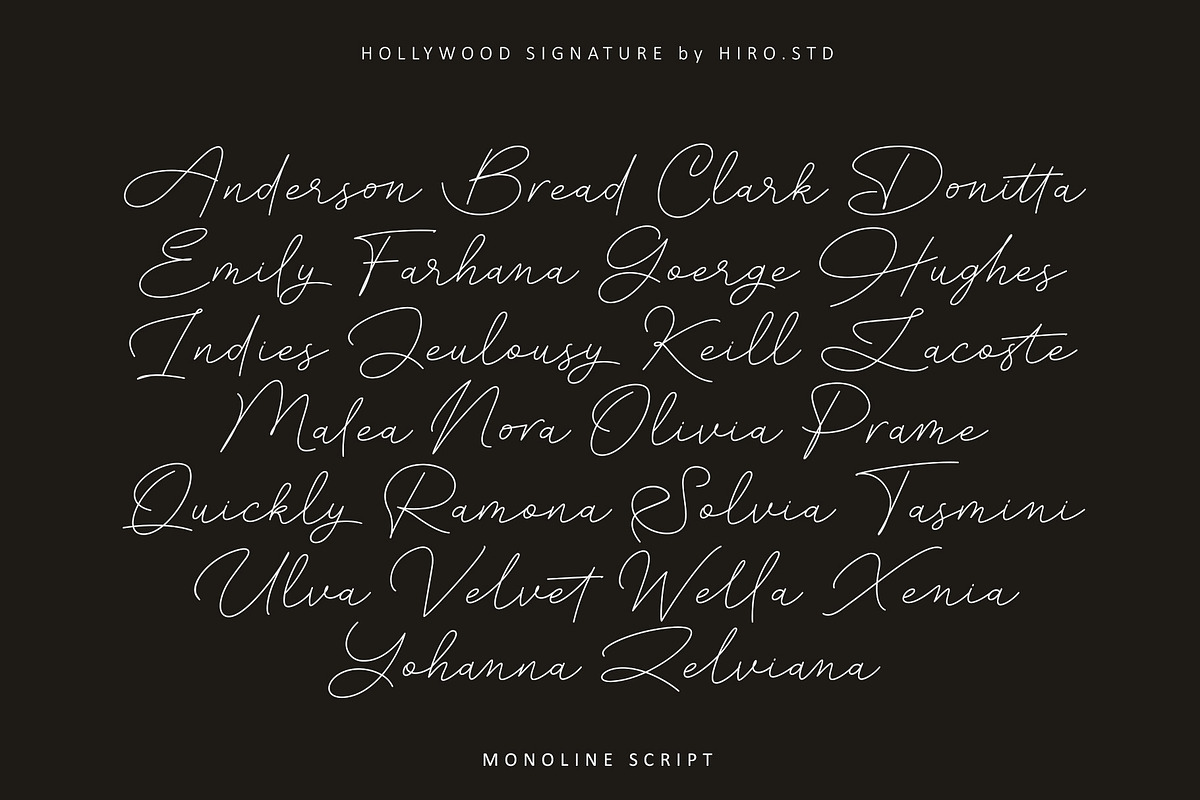 HOLLYWOOD SIGNATURE by HIRO.STD
Anderson Bread Clark Donitta
Emily Farhana Goerge Hughes
Indies Jeulousy Keill Lacoste
Malea Nora Olivia Prame
Quickly Ramona Solvia Tasmini
Ulva Velvet Wella Xenia
Yohanna Zelviana
MONOLINE SCRIPT